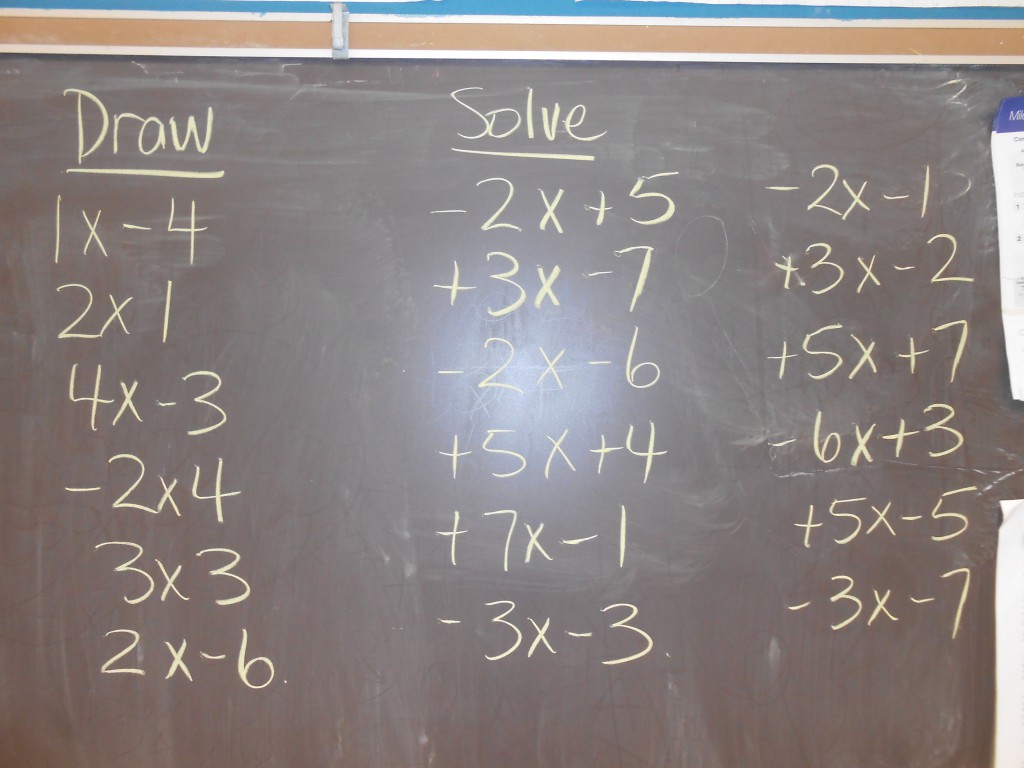 Draw
1x-4
2x1
4x-3
-2x4
3x3
2x-6.
Solve
-2x+5
+3x-7
-2x-6
+5x+4
+7x-1
-3x-3.
-2x-1
+3x-2
+5x+7
-6x+3
+5x-5
-3x-7